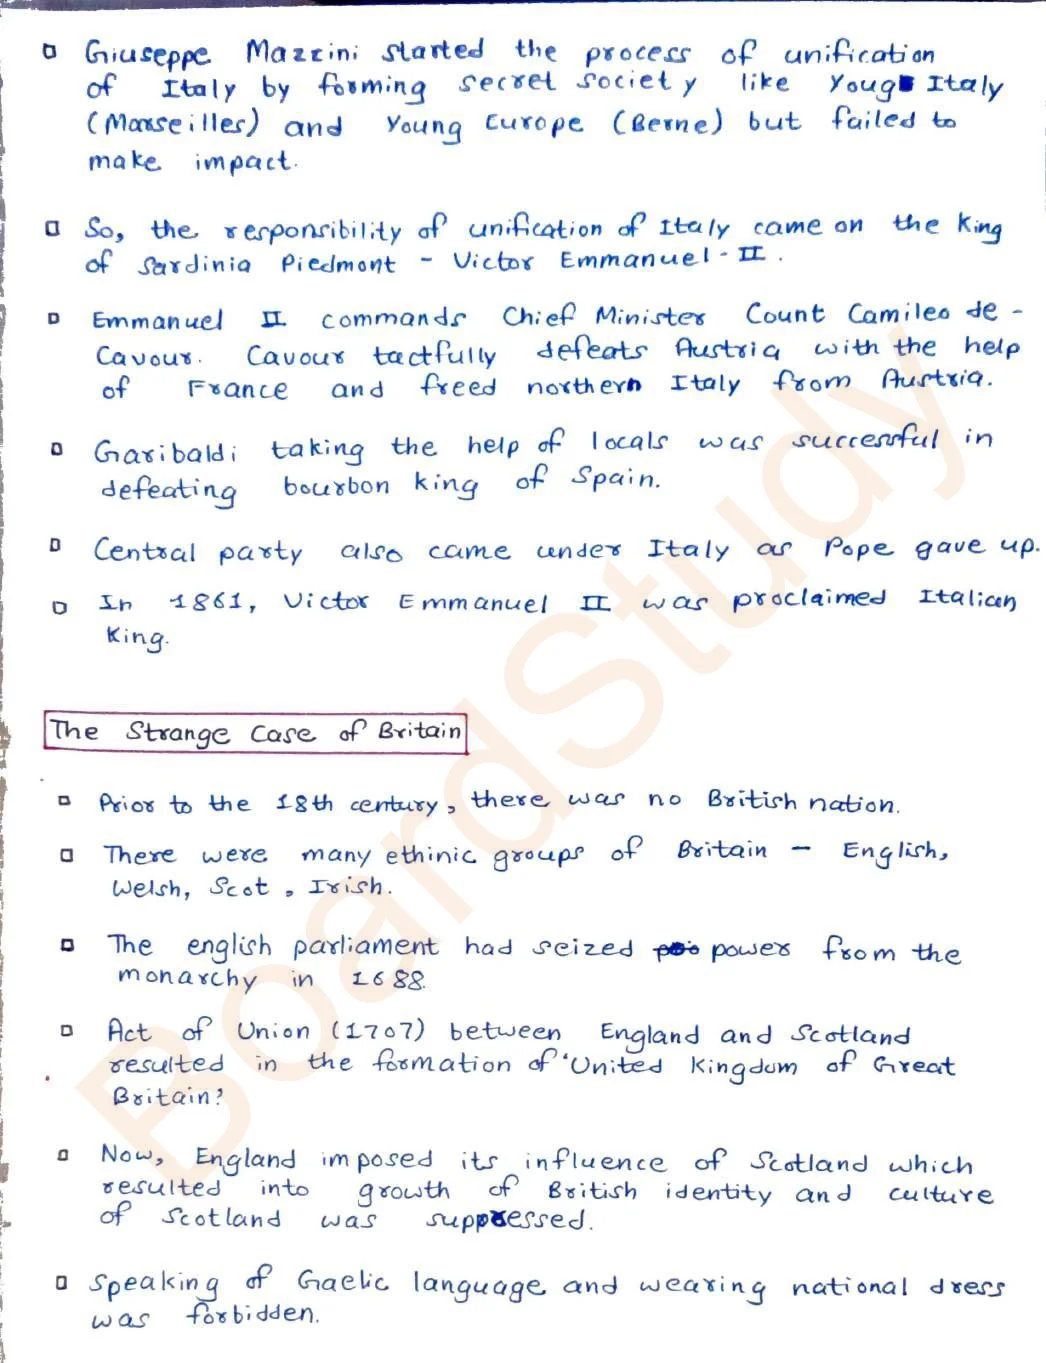 Giuseppe Mazzini started the process of unification
of Italy by forming secret society like Youg Italy
(Marseilles) and Young Europe (Berne) but failed to
make impact.
So, the responsibility of unification of Italy came on the King
of Sardinia Piedmont - Victor Emmanuel-II.
Emmanuel II commands Chief Minister Count Camileo de-
Cavour. Cavour tactfully defeats Austria with the help
of France and freed northern Italy from Austria.
Garibaldi taking the help of locals was successful in
defeating bourbon king of Spain.
Central party also came under Italy as Pope gave up.
In 1861, Victor Emmanuel II was proclaimed Italian
King.
The Strange Case of Britain
Prior to the 18th century, there was no British nation.
There were many ethinic groups of Britain - English,
Welsh, Scot, Irish.
The english parliament had seized power from the
monarchy in 1688.
Act of Union (1707) between England and Scotland
resulted in the formation of 'United Kingdom of Great
Britain'.
Now, England imposed its influence of Scotland which
resulted into growth of British identity and culture
of Scotland was suppressed.
Speaking of Gaelic language and wearing national dress
was forbidden.
BoardStudy